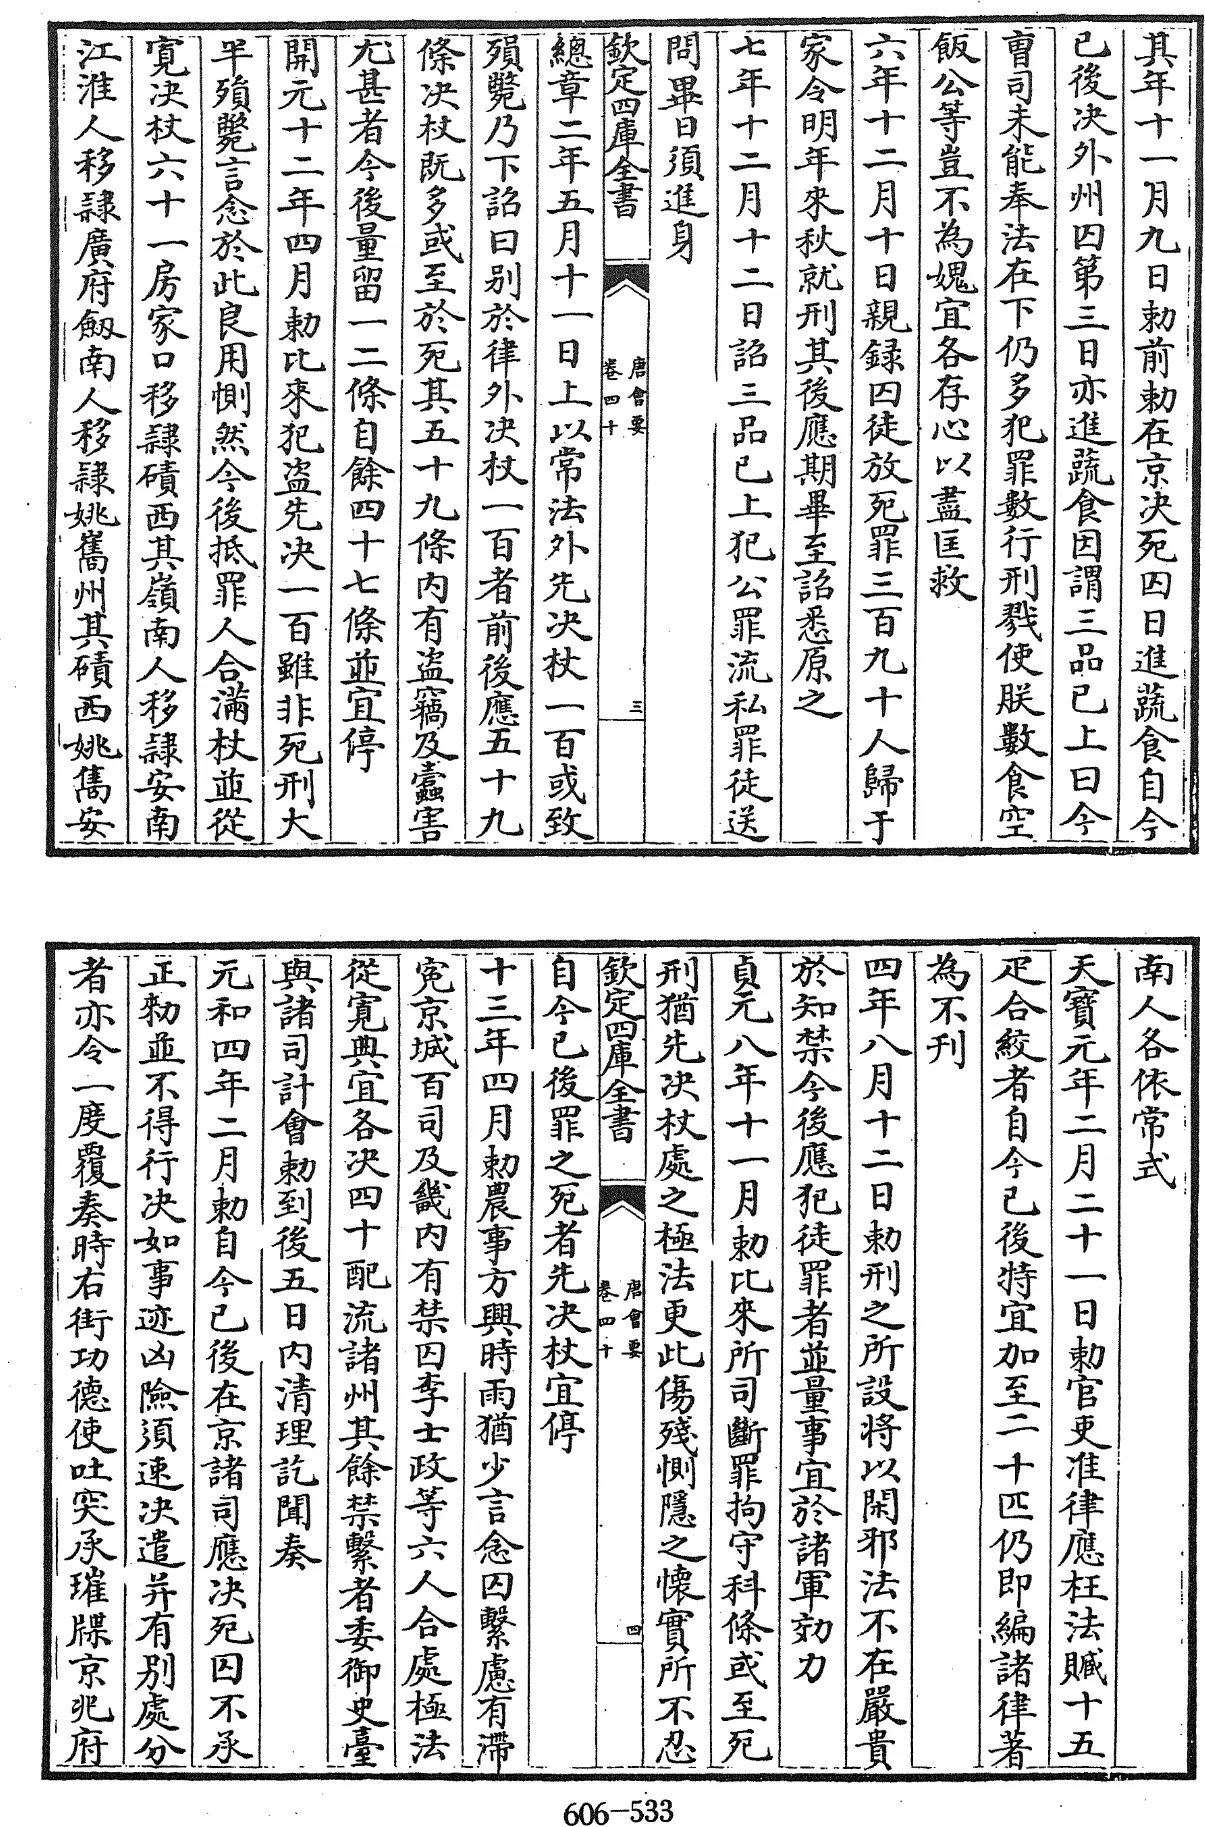 其年十一月九日勅前勅在京决死囚日進蔬食自今
已後决外州囚第三日亦進蔬食因謂三品已上曰今
曺司未能奉法在下仍多犯罪數行刑戮使朕數食空
飯公等豈不為媿宜各存心以盡匡救
六年十二月十日親録囚徒放死罪三百九十人歸于
家令明年來秋就刑其後應期畢至詔悉原之
七年十二月十二日詔三品已上犯公罪流私罪徒送
問畢日須進身
欽定四庫全書
唐會要
卷四十
三
總章二年五月十一日上以常法外先决杖一百或致
殞斃乃下詔曰别於律外决杖一百者前後應五十九
條决杖既多或至於死其五十九條内有盗竊及蠹害
尤甚者今後量留一二條自餘四十七條並宜停
開元十二年四月勅比來犯盗先决一百雖非死刑大
半殞斃言念於此良用惻然今後抵罪人合滿杖並從
寛决杖六十一房家口移隷磧西其嶺南人移隷安南
江淮人移隷廣府劔南人移隷姚嶲州其磧西姚雋安
南人各依常式
天寶元年二月二十一日勅官吏准律應枉法贓十五
疋合絞者自今已後特宜加至二十匹仍即編諸律著
為不刊
四年八月十二日勅刑之所設將以閑邪法不在嚴貴
於知禁今後應犯徒罪者並量事宜於諸軍効力
貞元八年十一月勅比來所司斷罪拘守科條或至死
刑猶先决杖處之極法更此傷殘惻隱之懷實所不忍
欽定四庫全書
唐會要
卷四十
四
自今已後罪之死者先决杖宜停
十三年四月勅農事方興時雨猶少言念囚繫慮有滯
寃京城百司及畿内有禁囚李士政等六人合處極法
從寛典宜各决四十配流諸州其餘禁繫者委御史臺
與諸司計會勅到後五日内清理訖聞奏
元和四年二月勅自今已後在京諸司應决死囚不承
正勅並不得行决如事迹凶險須速决遣并有别處分
者亦令一度覆奏時右街功德使吐突承璀牒京兆府
606-533